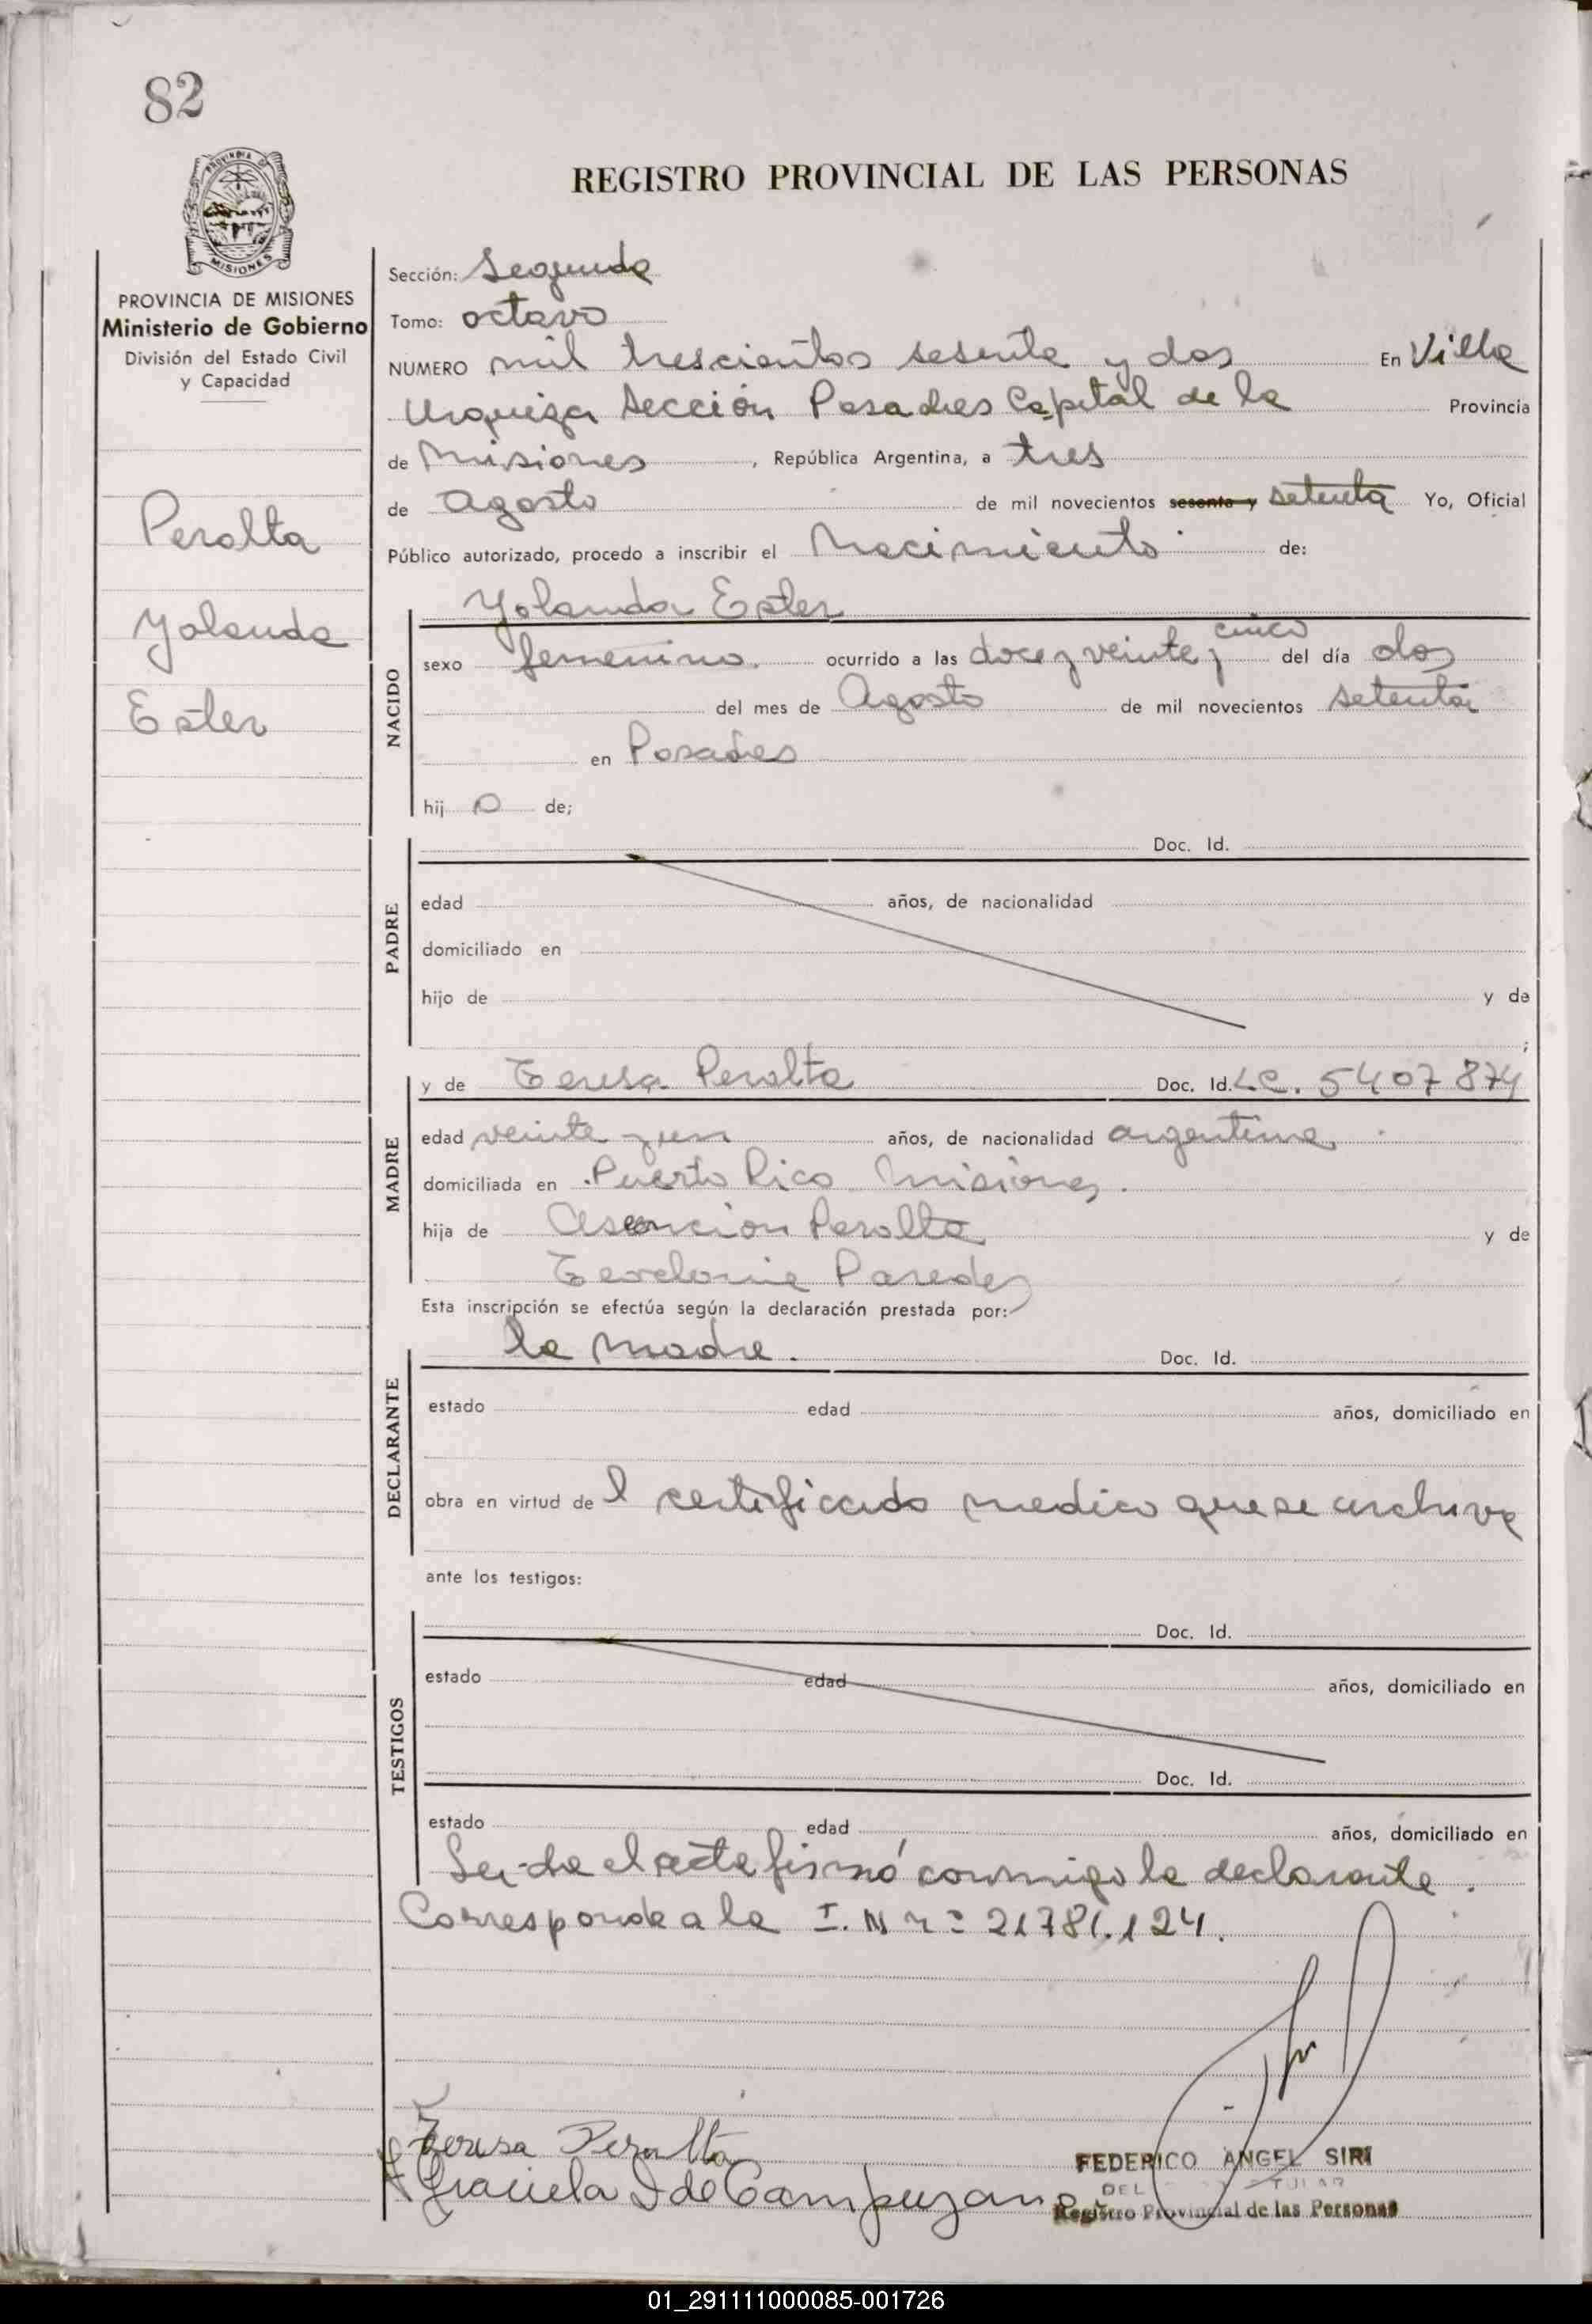 82
PROVINCIA DE
MISIONES
REGISTRO PROVINCIAL DE LAS PERSONAS
PROVINCIA DE MISIONES
Ministerio de Gobierno
División del Estado Civil
y Capacidad
Peralta
Yolanda
Ester
Sección: Segunda
Tomo: octavo
NUMERO mil trescientos sesenta y dos En Villa
Urquiza Sección Posadas Capital de la Provincia
de Misiones, República Argentina, a tres
de Agosto de mil novecientos sesenta y setenta Yo, Oficial
Público autorizado, procedo a inscribir el Nacimiento de:
NACIDO
Yolanda Ester
cinco
sexo femenino. ocurrido a las doce y veinte y del día dos
del mes de Agosto de mil novecientos setenta
en Posadas
hij a de;
PADRE
Doc. Id.
edad años, de nacionalidad
domiciliado en
hijo de y de
;
MADRE
y de Teresa Peralta Doc. Id. LC. 5407874
edad veinte y un años, de nacionalidad argentina
domiciliada en Puerto Rico Misiones.
hija de Asención Peralta y de
Paredes
Esta inscripción se efectúa según la declaración prestada por:
DECLARANTE
la madre. Doc. Id.
estado edad años, domiciliado en
obra en virtud de l certificado medico que se archiva
ante los testigos:
TESTIGOS
Doc. Id.
estado edad años, domiciliado en
Doc. Id.
estado edad años, domiciliado en
Leida el acta firmó conmigo la declarante.
Corresponde a la I. N nº 21781.124.
Teresa Peralta
Graciela S de Campuzano
FEDERICO ANGEL SIRI
DEL
Registro Provincial de las Personas
01_291111000085-001726